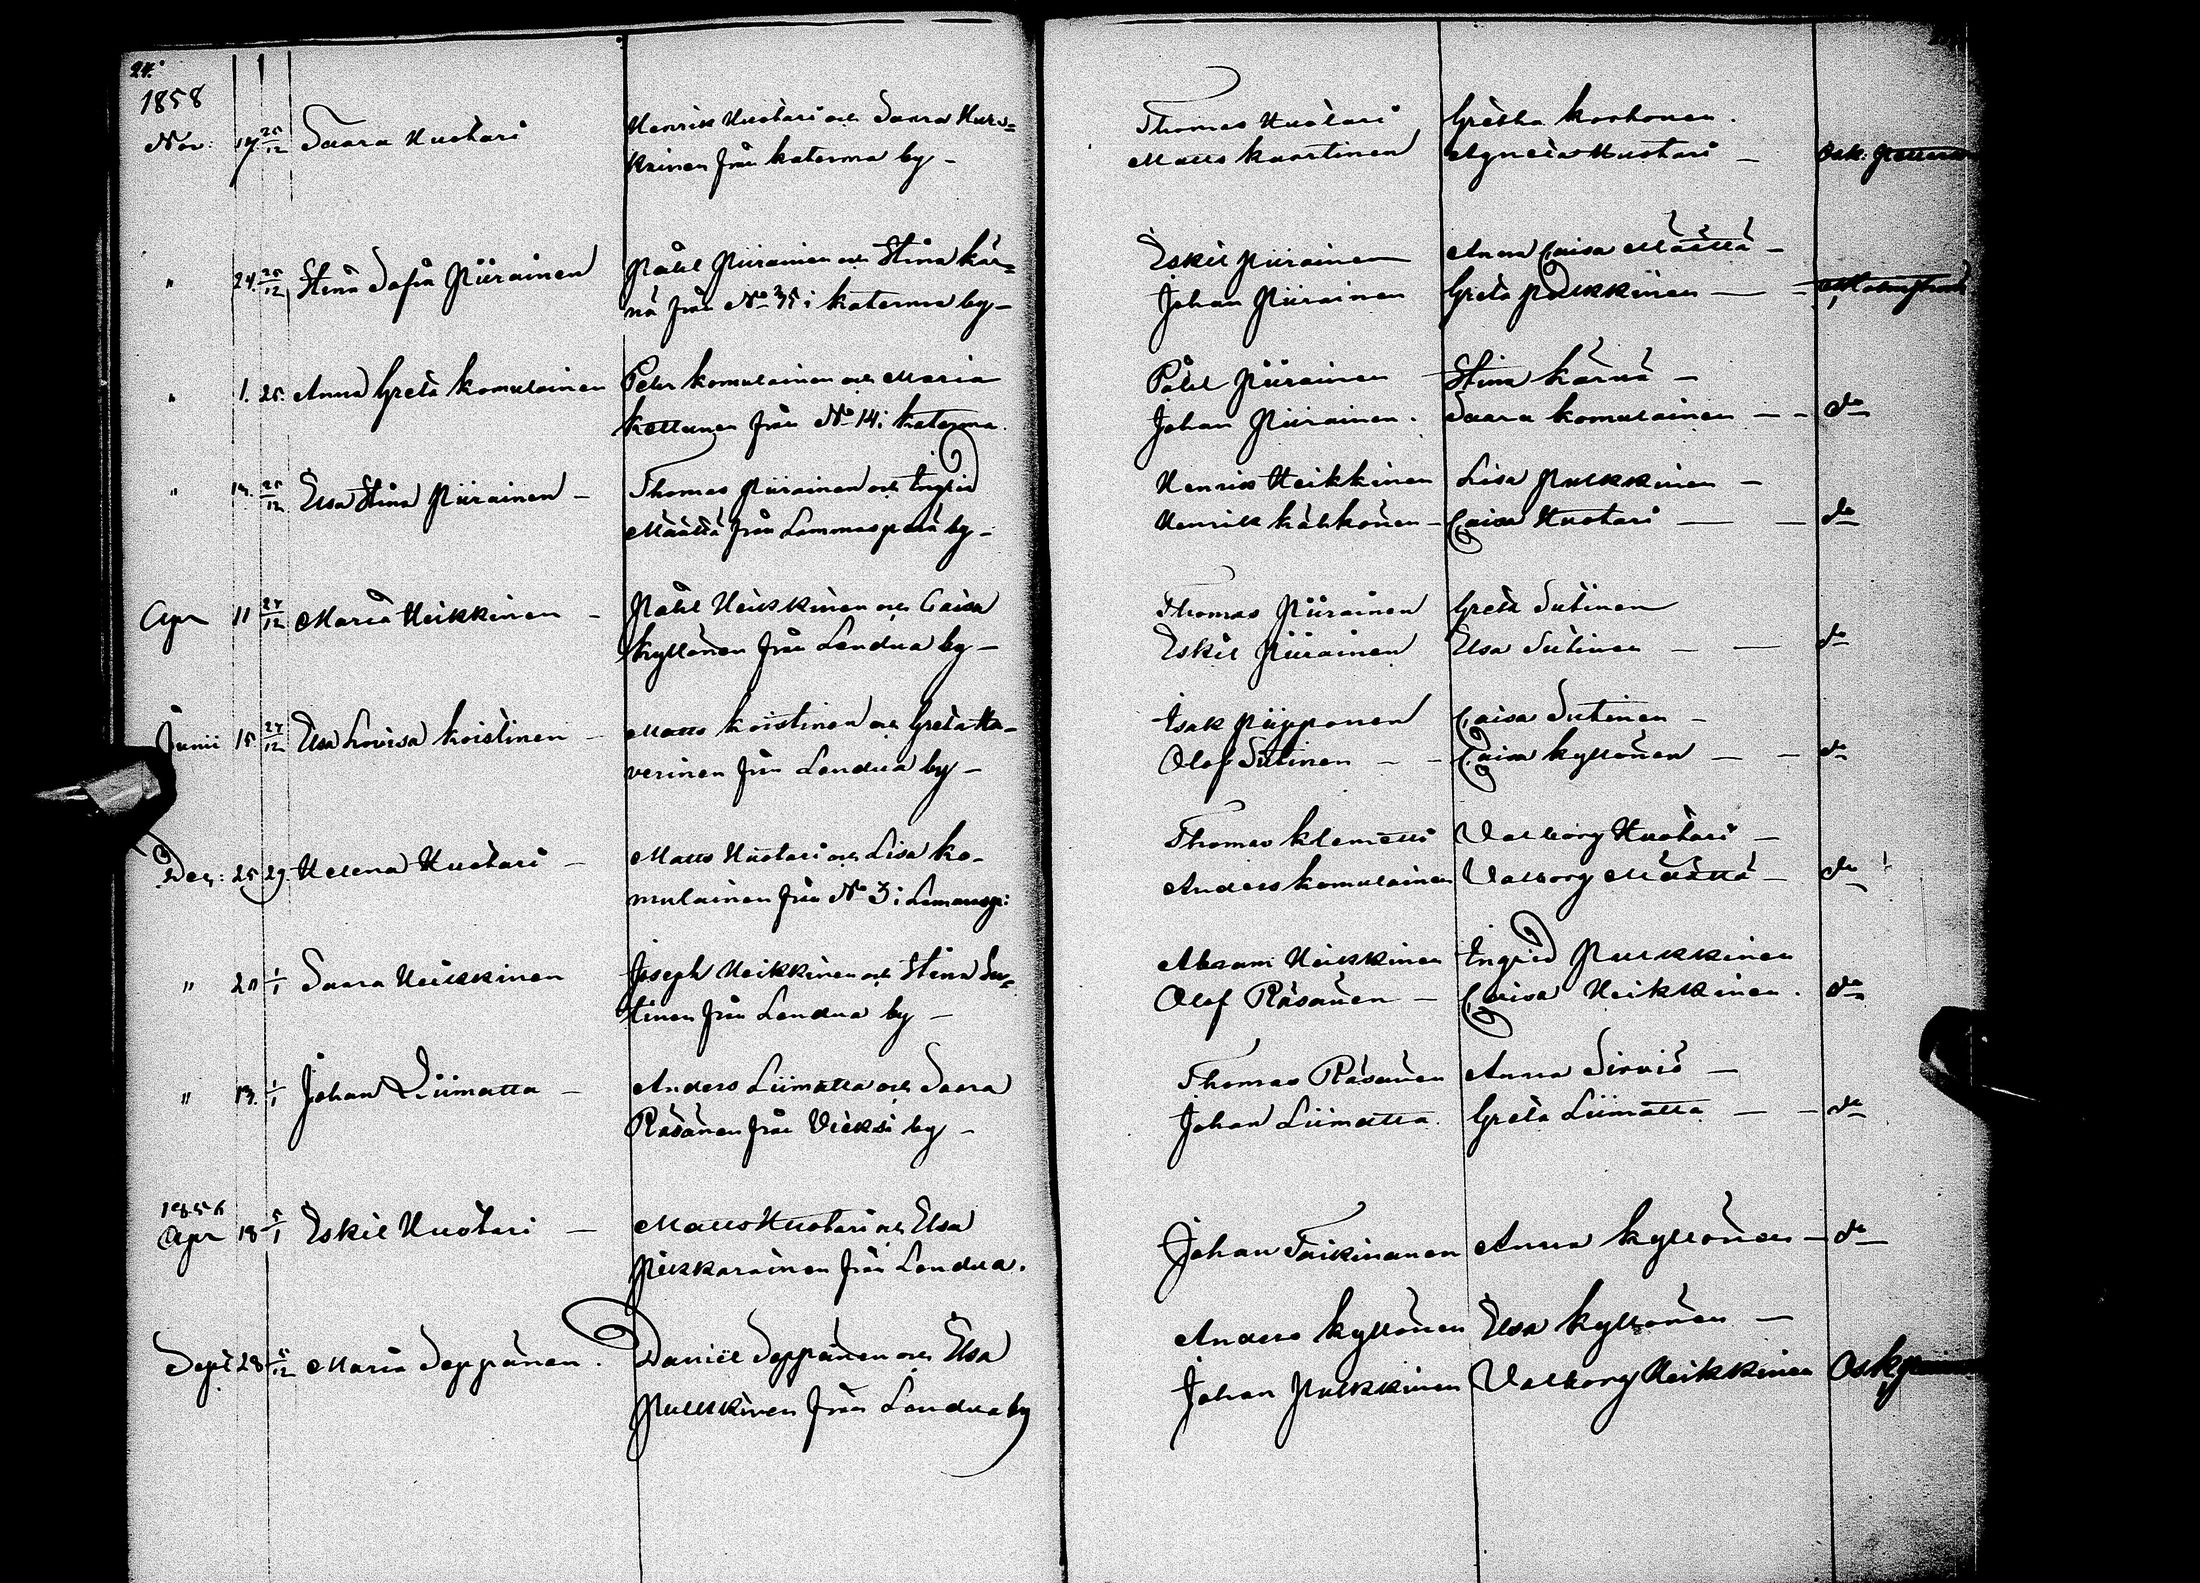 24.
1858
Nov. 17 25/12 Saara Huotari
Henrik Huotari och Saara Hurs=
kainen från Katerma by -
Thomas Huotari Greta Korhonen.
Matts Kaartinen Agneta Huotari -
" 24. 25/12 Stina Sofia Piirainen
Påhl Piirainen och Stina Kär=
nä från No 35 i Katerma by -
Eskil Piirainen Anna Caisa Määttä -
Johan Piirainen Greta Pulkkinen -
" 1. 25. Anna Greta Komulainen
Petr Komulainen och Maria
Kettunen från No 14 i Katerma.
Påhl Piirainen Stina Kärnä -
Johan Piirainen. Saara Komulainen - - do
" 14. 25/12 Elsa Stina Piirainen -
Thomas Piirainen och Ingrid
Määttä från Lammasperä by -
Henrik Heikkinen Lisa Pulkkinen -
Henrik Kähkönen - Caisa Huotari - - do
Apr 11 27/12 Maria Heikkinen -
Påhl Heikkinen och Caisa
Kyllönen från Lendua by -
Thomas Piirainen Greta Sutinen
Eskil Piirainen Elsa Sutinen - - do
Junii 15 27/12 Elsa Lovisa Koistinen -
Matts Koistinen och Greta Ha-
verinen från Lendua by -
Isak Piipponen Caisa Sutinen -
Olof Sutinen - - Caisa Kyllönen - - do
Dec: 25 29. Helena Huotari -
Matts Huotari och Lisa Ko-
mulainen från No 3 i Lamasp:
Thomas Klemetti Valborg Huotari -
Anders Komulainen Valborg Määttä - do
" 20 1/1 Saara Heikkinen
Joseph Heikkinen och Stina Su=
tinen från Lendua by -
Abram Heikkinen Ingrid Pulkkinen
Olof Räsänen - Caisa Heikkinen. do
" 13. 1/1 Johan Liimatta -
Anders Liimatta och Saara
Räsänen från Vieksi by -
Thomas Räsänen Anna Sirviö -
Johan Liimatta. Greta Liimatta - - do
1856
Apr 18 5/1 Eskil Huotari -
Matts Huotari och Elsa
Pikkarainen från Lendua.
Johan Taikinanen Anna Kyllönen - do
Sept 28 5/12 Maria Seppänen.
Daniel Seppänen och Elsa
Pulkkinen från Lendua by
Anders Kyllönen Elsa Kyllönen -
Johan Pulkkinen Valborg Heikkinen